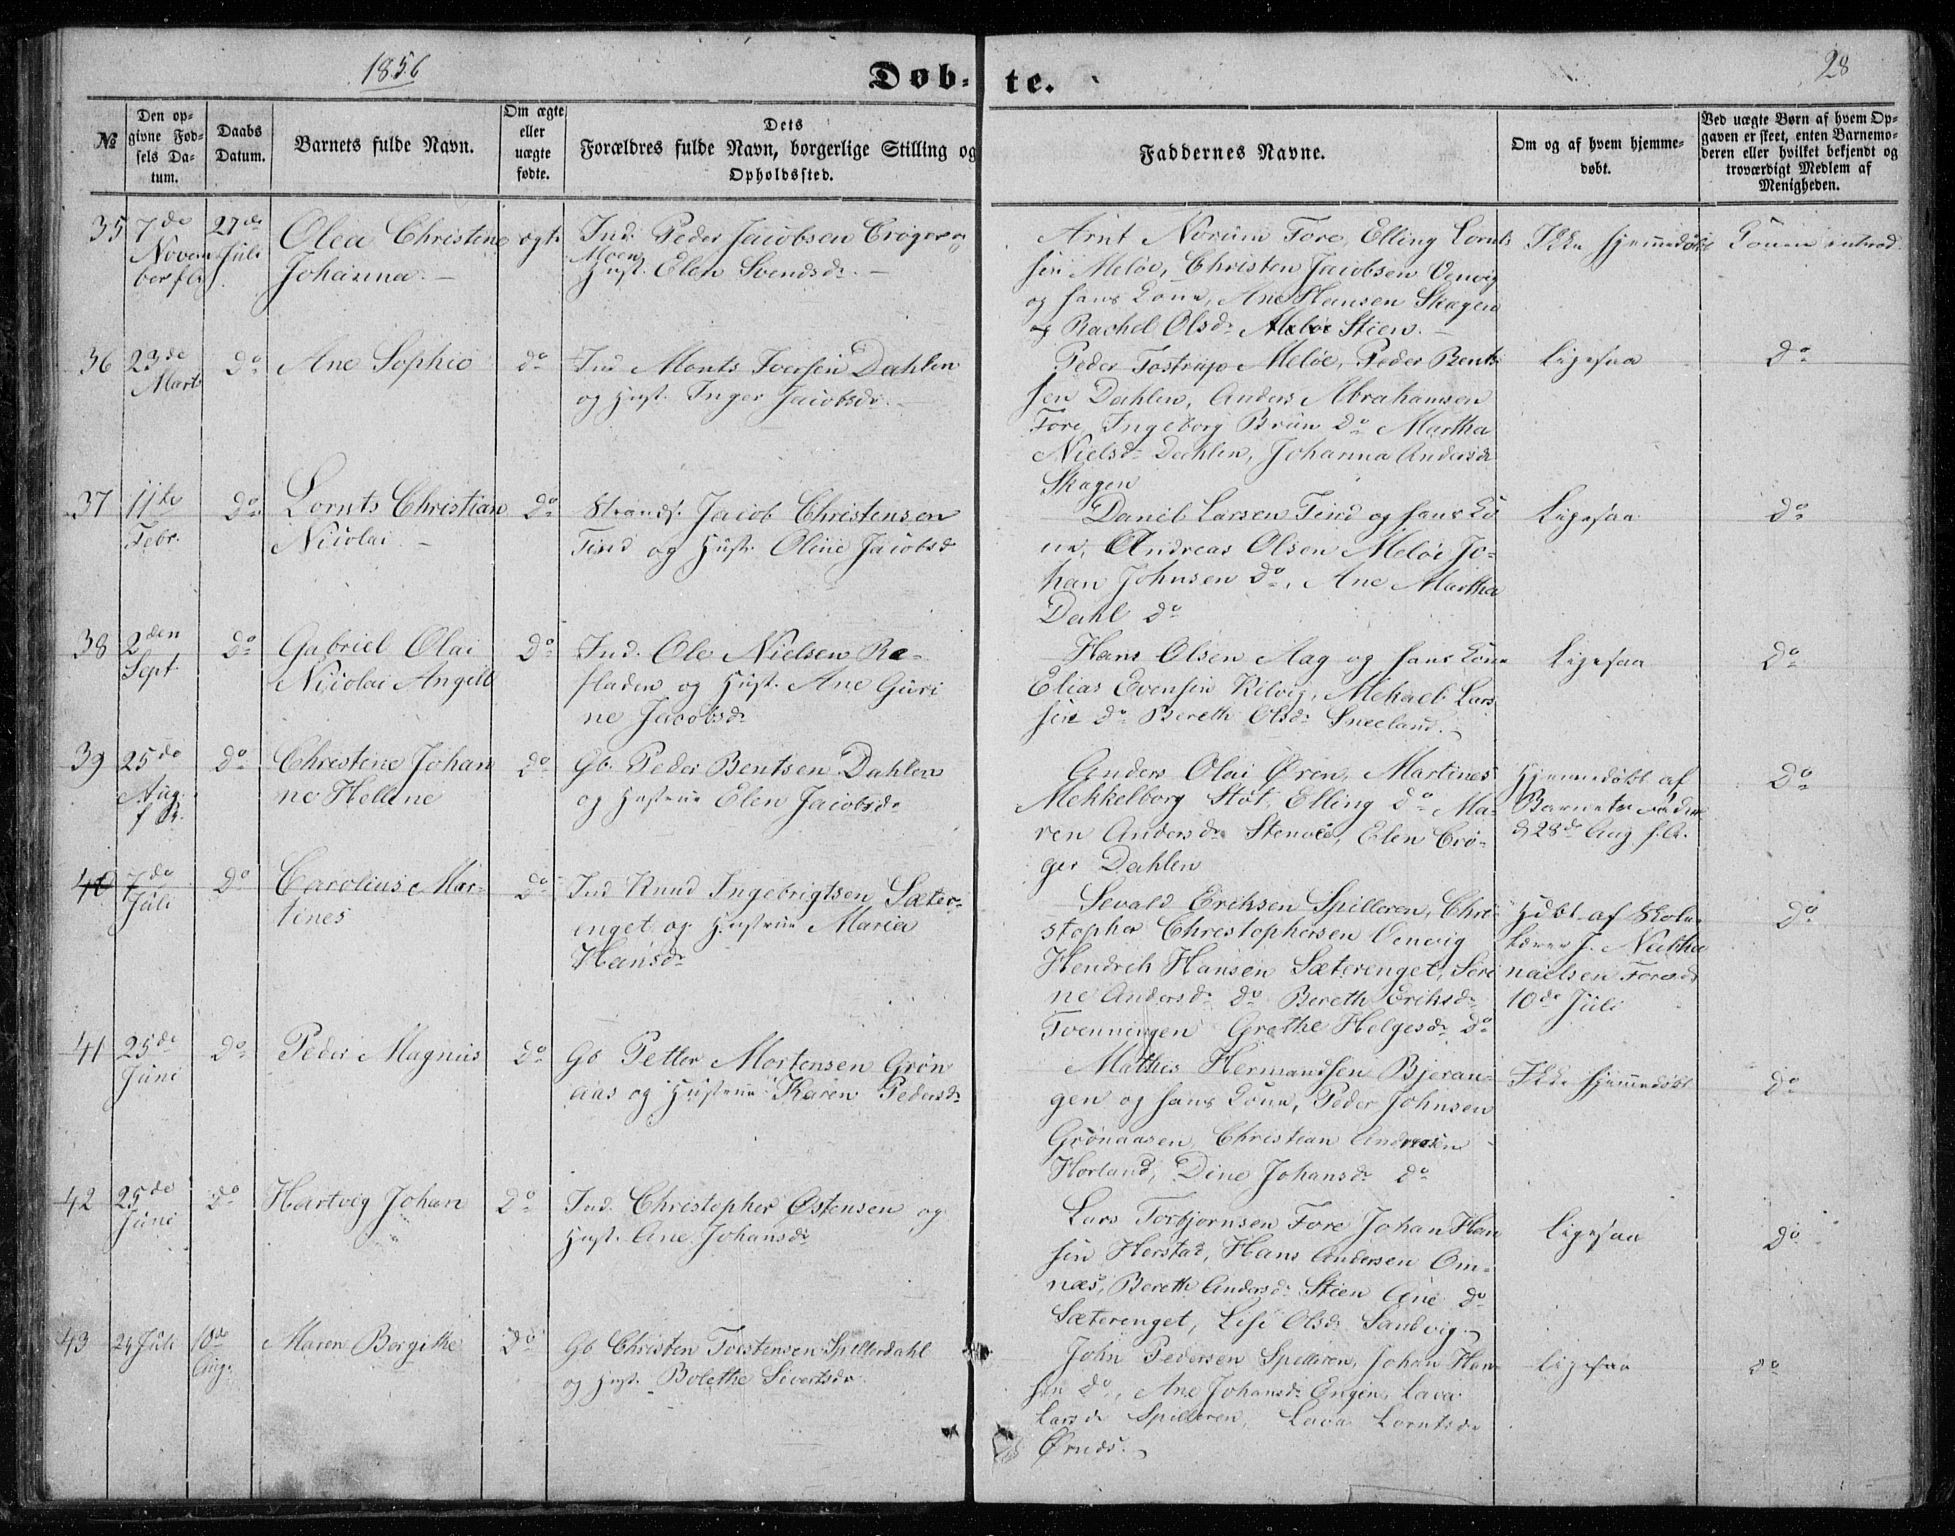 1856
Døb-te.
28
№
Den op-
givne Fød-
sels Da-
tum.
Daabs
Datum.
Barnets fulde Navn.
Om ægte
eller
uægte
fødte.
Dets
Forældres fulde Navn, borgerlige Stilling og
Opholdssted.
Faddernes Navne.
Om og af hvem hjemme-
døbt.
Ved uægte Børn af hvem Op-
gaven er skeet, enten Barnemo-
deren eller hvilket bekjendt og
troværdigt Medlem af
Menigheden.
35
7de
Novem
ber
27de
Juli
Olea Christine
Johanna
ægte
Ind. Peder Jacobsen Crøger og
Moen
Hust. Elen Svendsdr.
Arnt Norum Fore, Elling Lornt
sen Meløe, Christen Jacobsen Venvig
og hans Kone, Ane Hansen Skagen
og Rachel Olsdr Meløe Stien.
Ikke hjemmedøbt
Konen introd.
36
23de
Marts
Do
Ane Sophie
do
Ind Monts Iversen Dahlen
og Hust. Inger Jacobsdr.
Peder Tostrup Meløe, Peder Bents
sen Dahlen, Anders Abrahamsen
Fore, Ingeborg Bruun Do Martha
Nielsdr Dahlen, Johanna Andersdr
Skagen
Ligesaa
Do
37
11te
Febr.
Do
Lornts Christian
Nicolai
Do
Strands. Jacob Christensen
Tind og Hustr. Oline Jacobsd
Daniel Larsen Tind og hans Ko
ne, Andreas Olsen Meløe Jo-
han Johnsen Do, Ane Martha
Dahl do
Ligesaa
Do
38
2den
Sept
Do
Gabriel Olai
Nicolai Angell
Do
Ind. Ole Nielsen Re-
fladen og Hust. Ane Guri
ne Jacobsdr
Hans Olsen Aag og hans Kone
Elias Evensen Kilvig, Michael Lars
sen do Bereth Olsdr Sneeland.
Ligesaa
Do
39
25de
Aug.
f. A.
Do
Christine Johan
ne Hellene
Do
Gb. Peder Bentsen Dahlen
og Hustrue Elen Jacobsdr
Anders Olai Øren, Martines
Mekkelborg Støt, Elling do Ma-
ren Andersdr Stenvee, Elen Crø-
ger Dahlen
Hjemmedøbt af
Barnets Fader
d 28de Aug f. A.
Do
40
7de
Juli
Do
Carolius Mar-
tines
Do
Ind Knud Ingebrigtsen Sæter-
enget og Hustrue Maria
Hansdr
Sevald Eriksen Spilleren, Chri-
stopher Christophersen Venvig
Hendrch Hansen Sæterenget, Seri
ne Andersdr Do Bereth Eriksdr
Tvenningen Grethe Helgesdr do
Hdbt af Skole
lærer J. Natha
naelsen Fore d
10de Juli
Do
41
25de
Juni
Do
Peder Magnus
Do
Gb Petter Mortensen Grøn
aas og Hustrue Karen Pedersdr
Mathis Hermandsen Bjeran-
gen og hans Kone, Peder Johnsen
Grønaasen, Christian Andersen
Horland, Dine Johansdr do
Ikke hjemmedøbt
Do
42
25de
Juni
Do
Hartvig Johan
Do
Ind. Christopher Østensen og
Hust. Ane Johansdr
Lars Torbjornsen Fore Johan Han
sen Herstad, Hans Andersen Om-
næs, Bereth Andersdr Stien Ane do
Sæterenget, Lise Olsdr Sandvig
Ligesaa
Do
43
24 Juli
10de
Aug.
Maren Bergithe
Do
Gb Christen Torstensen Spillerdahl
og Hust. Bolethe Sivertsdr
John Pedersen Spilleren, Johan Han-
sen do, Ane Johansdr Engen, Lava
Larsdr Spilleren, Lava Lorntsdr
Ørnes.
Ligesaa
do